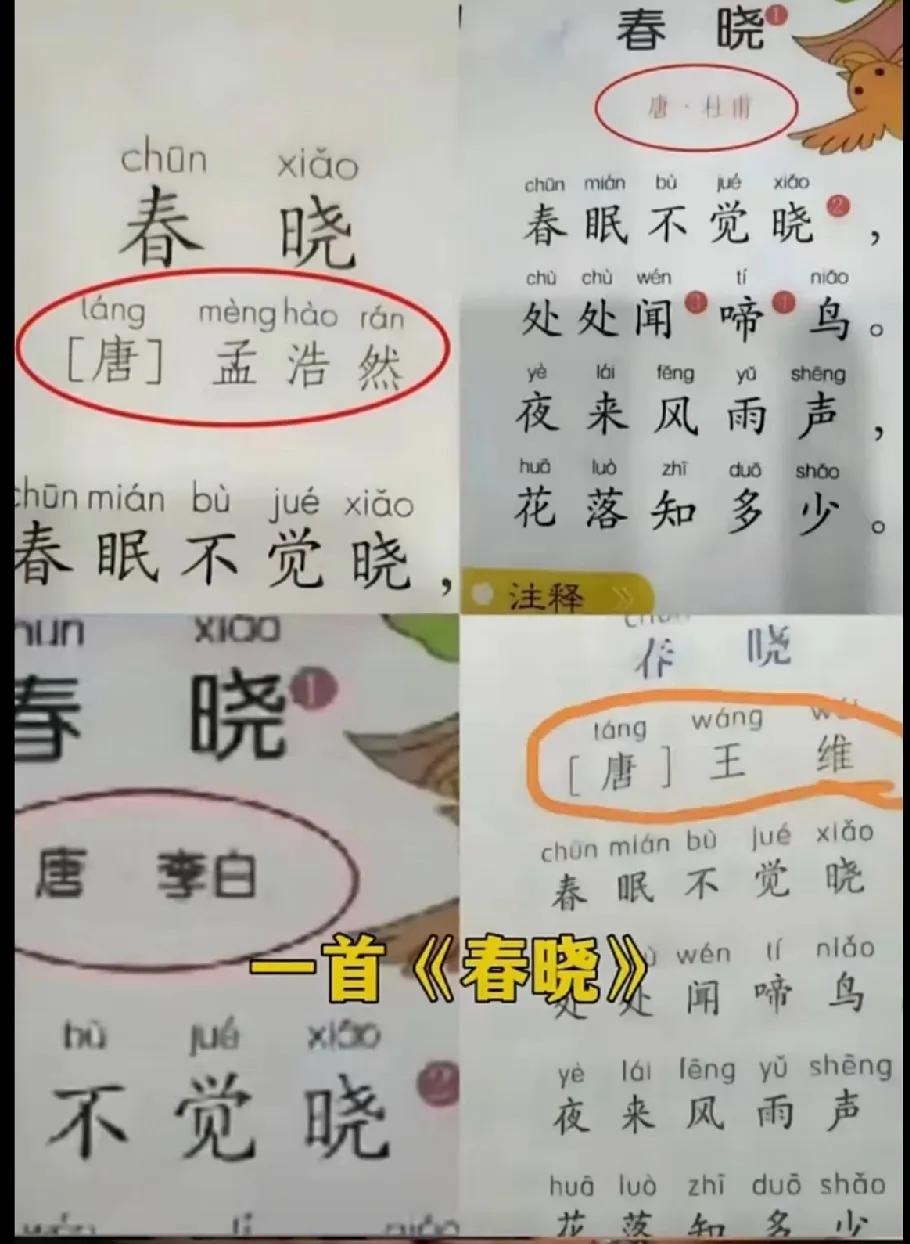 chūn xiǎo
春 晓
táng mèng hào rán
［唐］ 孟 浩 然
chūn mián bù jué xiǎo
春 眠 不 觉 晓，
春 晓①
唐·杜甫
chūn mián bù jué xiǎo
春 眠 不 觉 晓②，
chù chù wén tí niǎo
处 处 闻 啼 鸟。
yè lái fēng yǔ shēng
夜 来 风 雨 声，
huā luò zhī duō shǎo
花 落 知 多 少。
注释
xiǎo
春 晓①
唐 李白
bù jué xiǎo
不 觉 晓②
春 晓
táng wáng wéi
［唐］ 王 维
chūn mián bù jué xiǎo
春 眠 不 觉 晓
wén tí niǎo
处 处 闻 啼 鸟
yè lái fēng yǔ shēng
夜 来 风 雨 声
huā luò zhī duō shǎo
花 落 知 多 少
一首《春晓》